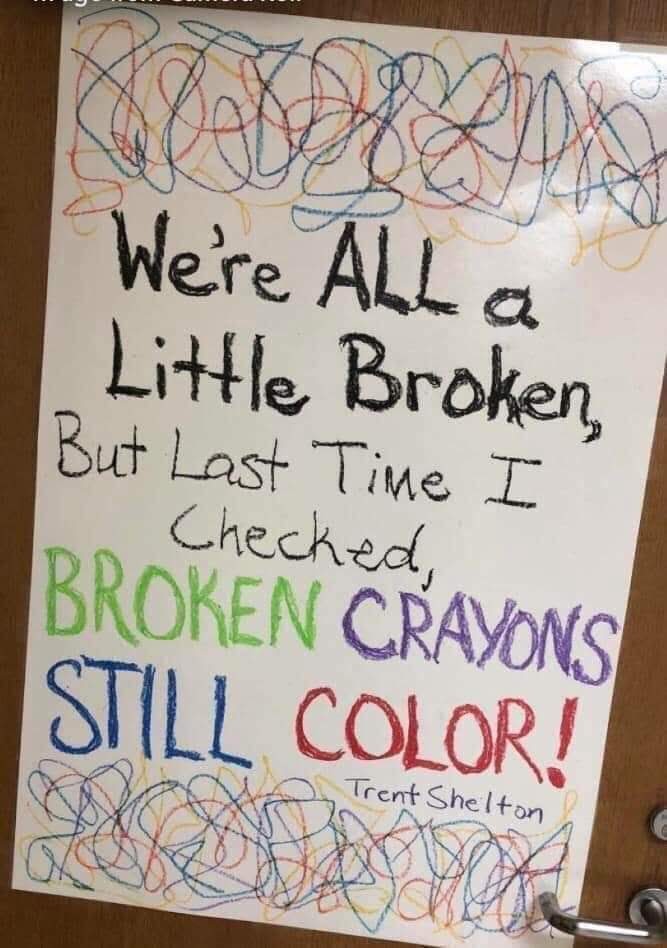 We're ALL a
Little Broken,
But Last Time I
Checked,
BROKEN CRAYONS
STILL COLOR!
Trent Shelton